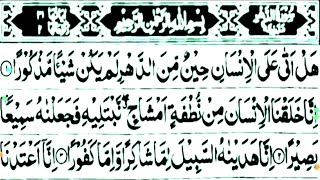 بِسْمِ اللّٰهِ الرَّحْمٰنِ الرَّحِيْمِ
هَلْ اَتٰى عَلَى الْاِنْسَانِ حِيْنٌ مِّنَ الدَّهْرِ لَمْ يَكُنْ شَيْـًٔا مَّذْكُوْرًا ۝۱
اِنَّا خَلَقْنَا الْاِنْسَانَ مِنْ نُّطْفَةٍ اَمْشَاجٍ ۖ نَّبْتَلِيْهِ فَجَعَلْنٰهُ سَمِيْعًۢا
بَصِيْرًا ۝۲ اِنَّا هَدَيْنٰهُ السَّبِيْلَ اِمَّا شَاكِرًا وَّاِمَّا كَفُوْرًا ۝۳ اِنَّآ اَعْتَدْنَا